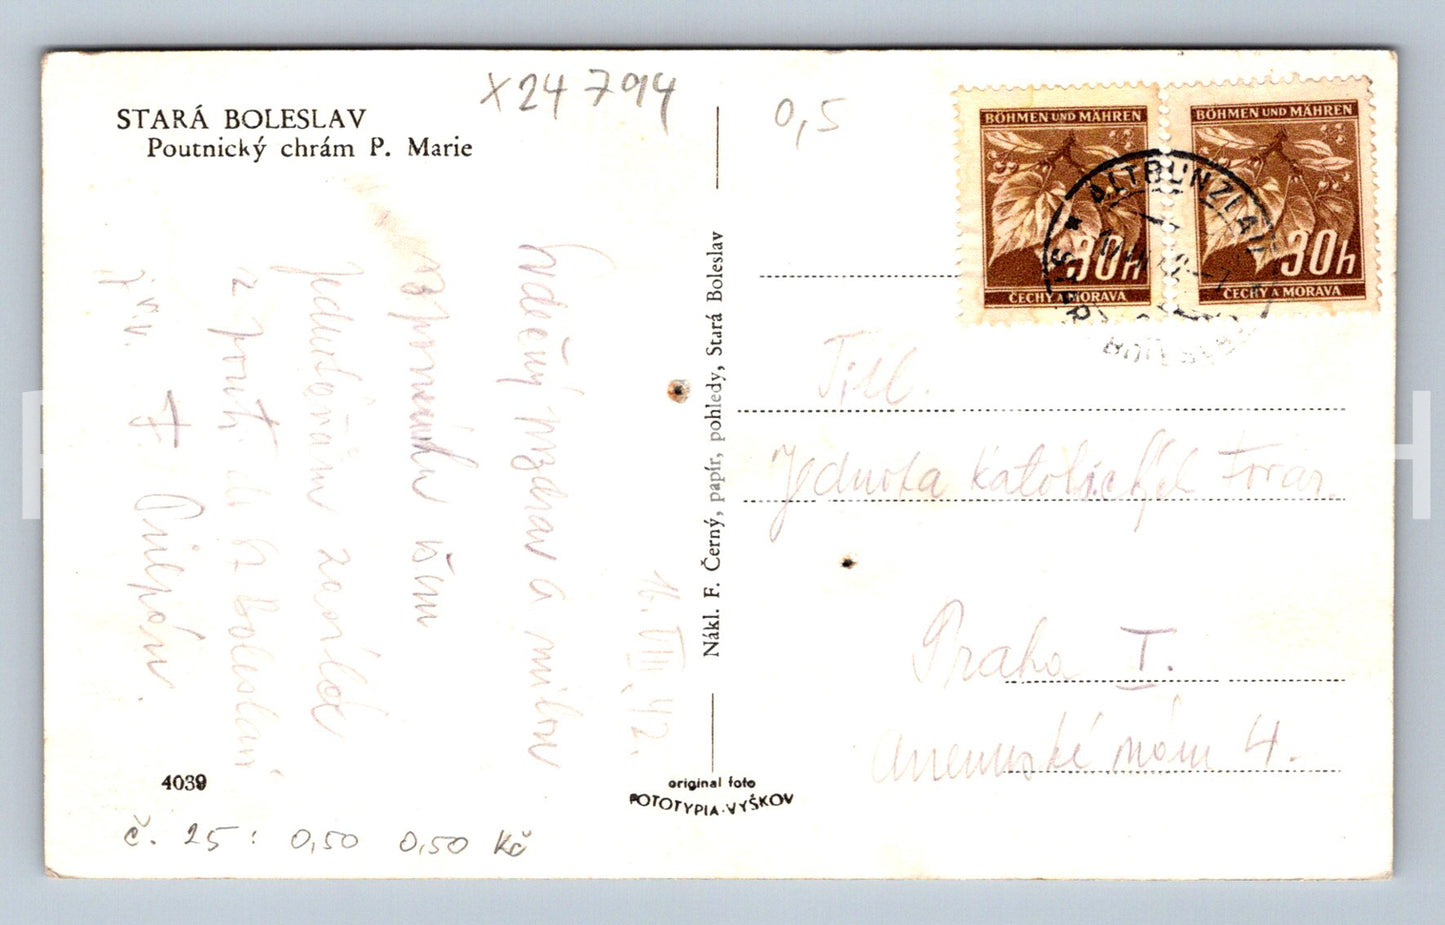 STARÁ BOLESLAV
Poutnický chrám P. Marie
X24 794
0,5
BÖHMEN UND MÄHREN
30h
ČECHY A MORAVA
BÖHMEN UND MÄHREN
30h
ČECHY A MORAVA
ALTBUNZLAU
STARÁ BOLESLAV
16. VIII. 42.
Srdečný pozdrav a milou
vzpomínku všem
Jednotářům zasílá
z pouti do St Boleslavi
F
Titl.
Jednota katolických
Praha I.
Anenské nám 4.
Nákl. F. Černý, papír, pohledy, Stará Boleslav
4039
original foto
FOTOTYPIA-VYŠKOV
č. 25: 0,50 0,50 Kč